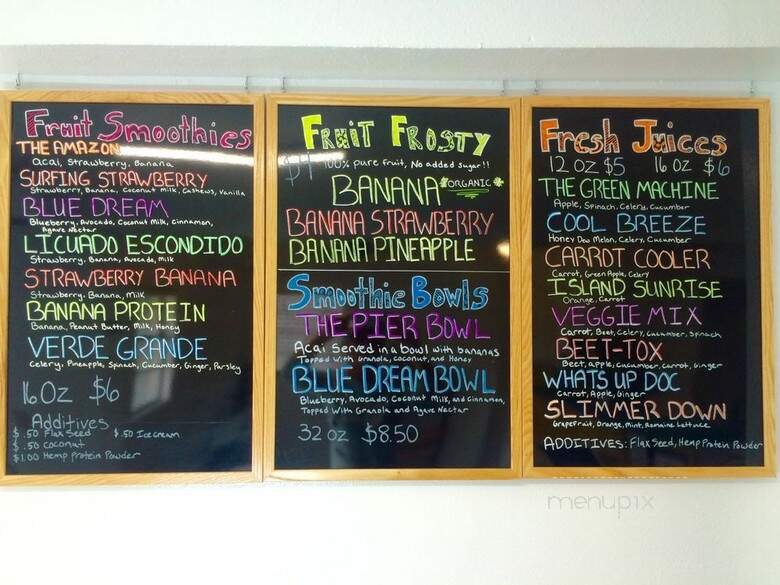 Fruit Smoothies
THE AMAZON
acai, Strawberry, Banana
SURFING STRAWBERRY
Strawberry, Banana, Coconut Milk, Cashews, Vanilla
BLUE DREAM
Blueberry, Avocado, Coconut Milk, Cinnamon,
Agave Nectar
LICUADO ESCONDIDO
Strawberry, Banana, Avocado, Milk
STRAWBERRY BANANA
Strawberry, Banana, Milk
BANANA PROTEIN
Banana, Peanut Butter, Milk, Honey
VERDE GRANDE
Celery, Pineapple, Spinach, Cucumber, Ginger, Parsley
16 OZ $6
Additives
$.50 Flax Seed $.50 Ice cream
$.50 Coconut
$1.00 Hemp Protein Powder
FRUIT FROSTY
$4 100% pure fruit, No added Sugar!!
BANANA ORGANIC
BANANA STRAWBERRY
BANANA PINEAPPLE
Smoothie Bowls
THE PIER BOWL
Acai Served in a bowl with bananas
Topped with Granola, Coconut, and Honey
BLUE DREAM BOWL
Blueberry, Avocado, Coconut Milk, and Cinnamon,
Topped With Granola and Agave Nectar
32 OZ $8.50
Fresh Juices
12 OZ $5 16 OZ $6
THE GREEN MACHINE
Apple, Spinach, Celery, Cucumber
COOL BREEZE
Honey Dew Melon, Celery, Cucumber
CARROT COOLER
Carrot, Green Apple, Celery
ISLAND SUNRISE
Orange, Carrot
VEGGIE MIX
Carrot, Beet, Celery, Cucumber, Spinach
BEET-TOX
Beet, apple, Cucumber, Carrot, Ginger
WHATS UP DOC
Carrot, Apple, Ginger
SLIMMER DOWN
Grapefruit, Orange, Mint, Romaine Lettuce
ADDITIVES: Flax Seed, Hemp Protein Powder
menupix